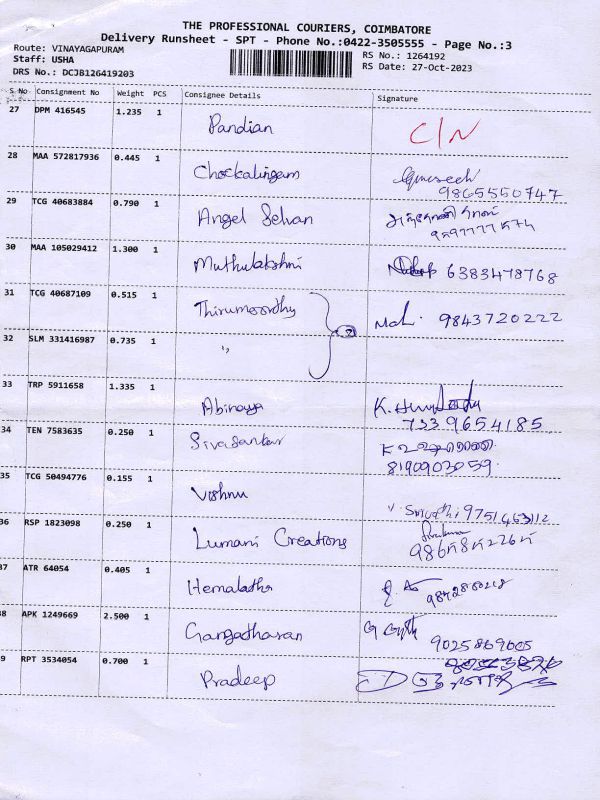 THE PROFESSIONAL COURIERS, COIMBATORE
Delivery Runsheet - SPT - Phone No.:0422-3505555 - Page No.:3
Route: VINAYAGAPURAM RS No.: 1264192
Staff: USHA RS Date: 27-Oct-2023
DRS No.: DCJB126419203
S No Consignment No Weight PCS Consignee Details Signature
27 DPM 416545 1.235 1 Pandian C/N
28 MAA 572817936 0.445 1 Chockalingam
9865550747
29 TCG 40683884 0.790 1 Angel Selvan
30 MAA 105029412 1.300 1 Muthulakshmi 6383478768
31 TCG 40687109 0.515 1 Thirumoorthy 9843720222
32 SLM 331416987 0.735 1 "
33 TRP 5911658 1.335 1 Abinaya K.
7339654185
34 TEN 7583635 0.250 1 Sivasankar
8190903059
35 TCG 50494776 0.155 1 Vishnu
36 RSP 1823098 0.250 1 Lumani Creations
37 ATR 64054 0.405 1 Hemalatha
38 APK 1249669 2.500 1 Gangadharan
9025869005
39 RPT 3534054 0.700 1 Pradeep